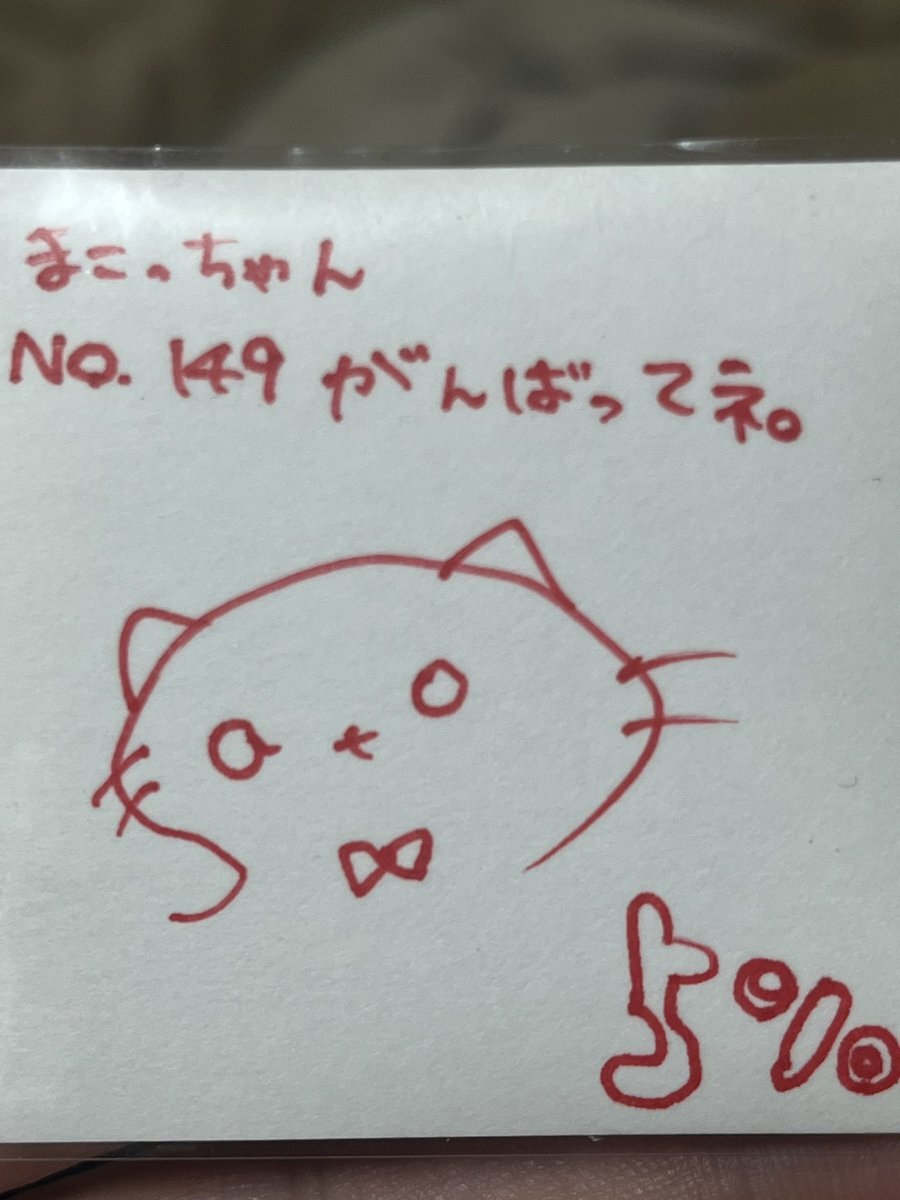 まこっちゃん
NO. 149 がんばってネ。
よ%